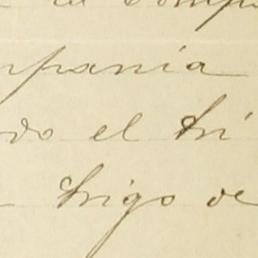 la Comp
mpania
do el tri
trigo de